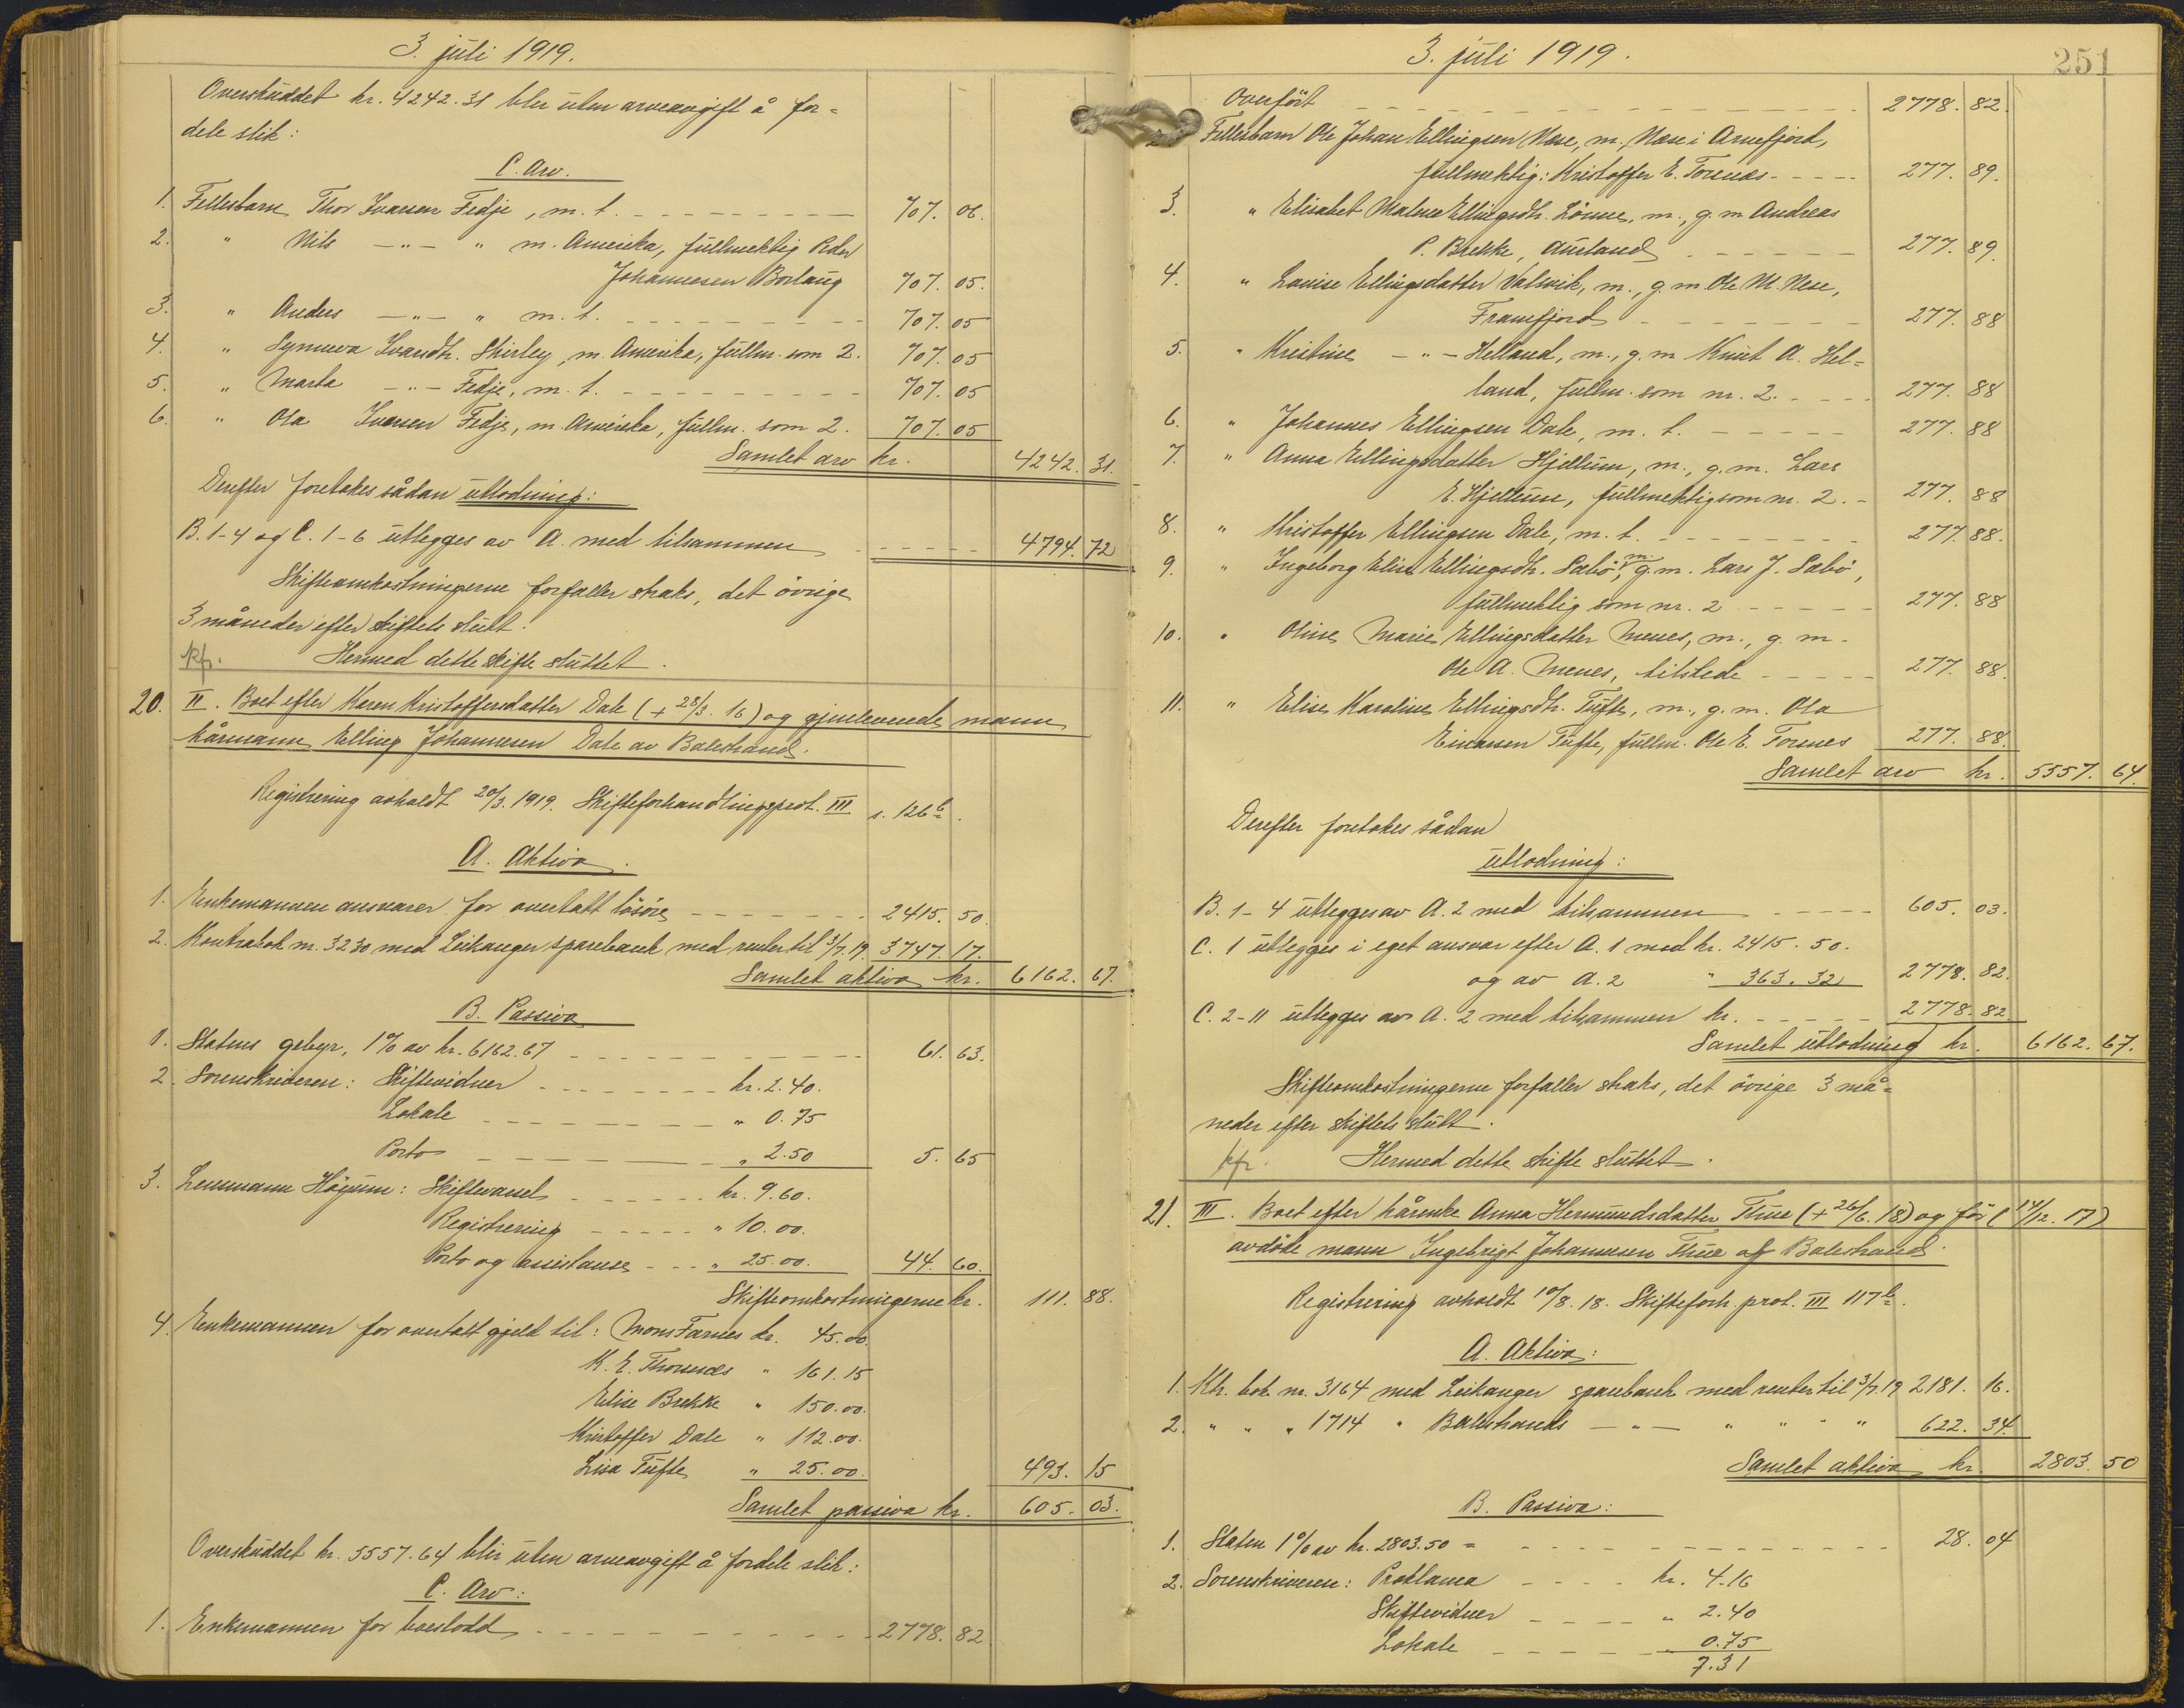 3. juli 1919.
Overskuddet kr. 4242.31 blir uten arveavgift å for=
dele slik:
C. Arv.
1. Fellesbarn Thor Ivarsen Fedje, m. t. 707. 06.
2. " Nils -"- " m. Amerika, fullmektig Peder
Johannesen Borlaug 707. 05.
3. " Anders -"- " m. t. 707. 05
4. " Synneva Ivarsdtr. Shirley, m. Amerika, fullm. som 2. 707. 05
5. " Marta -"- Fedje, m. t. 707. 05
6. " Ola Ivarsen Fedje, m. Amerika, fullm. som 2. 707. 05
Samlet arv kr. 4242. 31.
Derefter foretokes sådan utlodning:
B. 1-4 og C. 1-6 utlegges av A. med tilsammen 4794. 72
Skifteomkostningerne forfaller straks, det övrige
3 måneder efter skiftets slutt.
kfr. Hermed dette skifte sluttet.
20. II. Boet efter Karen Kristoffersdatter Dale (+ 28/3. 16) og gjenlevende mann
kårmann Elling Johannesen Dale av Balestrand.
Registrering avholdt 20/3. 1919. Skifteforhandlingsprot. III s. 126b.
A. Aktiva.
1. Enkemannen ansvarer for overtatt lösöre 2415. 50.
2. Kontrabok nr. 3230 med Leikanger sparebank med renter til 3/7. 19. 3747. 17.
Samlet aktiva kr. 6162. 67.
B. Passiva
1. Statens gebyr, 1% av kr. 6162.67 61. 63.
2. Sorenskriveren: Skiftevidner kr. 2.40.
Lokale " 0.75
Porto " 2.50 5. 65
3. Lensmann Högum: Skiftevarsel kr. 9.60.
Registrering " 10.00.
Porto og assistanse " 25.00. 44. 60.
Skifteomkostningerne kr. 111. 88.
4. Enkemannen for overtatt gjeld til: Mons Farnes kr. 45.00.
K. E. Thorsnes " 161.15
Elise Brekke " 150.00.
Kristoffer Dale " 112.00.
Lisa Tufte " 25.00. 493. 15
Samlet passiva kr. 605. 03.
Overskuddet kr. 5557.64 blir uten arveavgift å fordele slik:
C. Arv:
1. Enkemannen for boeslodd 2778. 82
3. juli 1919.
251
Overfört 2778. 82.
2. Fellesbarn Ole Johan Ellingsen Nese, m., Nese i Arnefjord,
fullmektig: Kristoffer E. Torsnes 277. 89.
3. " Elisabet Malene Ellingsdtr. Lönne, m., g. m. Andreas
P. Brekke, Aurland 277. 89.
4. " Lovise Ellingsdatter Valsvik, m., g. m. Ole M. Nese,
Framfjord 277. 88
5. " Kristine -"- Helland, m., g. m. Knut A. Hel=
land, fullm. som nr. 2. 277. 88
6. " Johannes Ellingsen Dale, m. t. 277. 88
7. " Anna Ellingsdatter Hjellum, m., g. m. Lars
E. Hjellum, fullmektig som nr. 2. 277. 88
8. " Kristoffer Ellingsen Dale, m. t. 277. 88.
9. " Ingeborg Elise Ellingsdtr. Sæbö, m. g. m. Lars J. Sæbö,
fullmektig som nr. 2 277. 88
10. " Oline Marie Ellingsdatter Menes, m., g. m.
Ole A. Menes, tilstede 277. 88.
11. " Elise Karoline Ellingsdtr. Tufte, m., g. m. Ola
Einarsen Tufte, fullm. Ole E. Torsnes 277. 88.
Samlet arv kr. 5557. 64.
Derefter foretokes sådan
utlodning:
B. 1-4 utlegges av A. 2 med tilsammen 605. 03.
C. 1 utlegges i eget ansvar efter A. 1 med kr. 2415. 50.
og av A. 2 " 363. 32 2778. 82.
C. 2-11 utlegges av A. 2 med tilsammen kr. 2778. 82.
Samlet utlodning kr. 6162. 67.
Skifteomkostningerne forfaller straks, det övrige 3 må=
neder efter skiftets slutt.
kfr. Hermed dette skifte sluttet.
21. III. Boet efter kårenke Anna Hermundsdatter Thue (+ 26/6. 18) og för (14/12. 17)
avdöde mann Ingebrigt Johannesen Thue af Balestrand.
Registrering avholdt 10/8. 18. Skifteforh. prot. III 117b.
A. Aktiva:
1. Ktr. bok nr. 3164 med Leikanger sparebank med renter til 3/7. 19 2181. 16.
2. " " " 1714 " Balestrands -"- " " " " 622. 34.
Samlet aktiva kr. 2803. 50
B. Passiva:
1. Staten 1% av kr. 2803.50 = 28. 04
2. Sorenskriveren: Proklama kr. 4.16
Skiftevidner " 2.40
Lokale 0.75
7.31